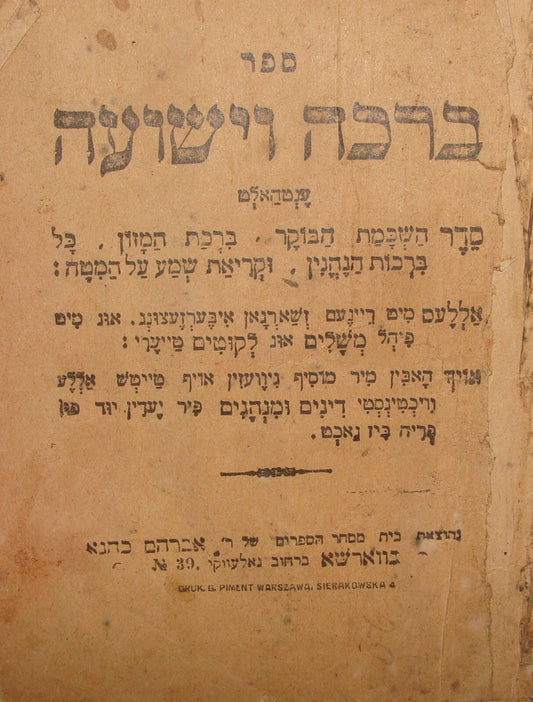 ספר
ברכה וישועה
ענטהאלט
סֵדֶר הַשְׁכָּמַת הַבּוֹקֶר, בִּרְכַּת הַמָזוֹן, כָּל
בִּרְכוֹת הַנֶהֱנִין, וּקְרִיאַת שְׁמַע עַל הַמִטָה:
אַללֶעס מיט ריינעם זשארגאן איבערזעצונג. אונ מיט
פיהל מְשָׁלִים אונ לִקוּטִים טייערי:
אויך האבין מיר מוסיף גיוועזין אויף טייטש אללע
וויכטינסטי דִינִים וּמִנְהָגִים פיר יעדין יוד פון
פריה ביז נאכט.
בהוצאת בית מסחר הספרים של ר' אברהם כהנא
בווארשא ברחוב נאלעווקי 39. №
DRUK. G. PIMENT WARSZAWA, SIERAKOWSKA 4